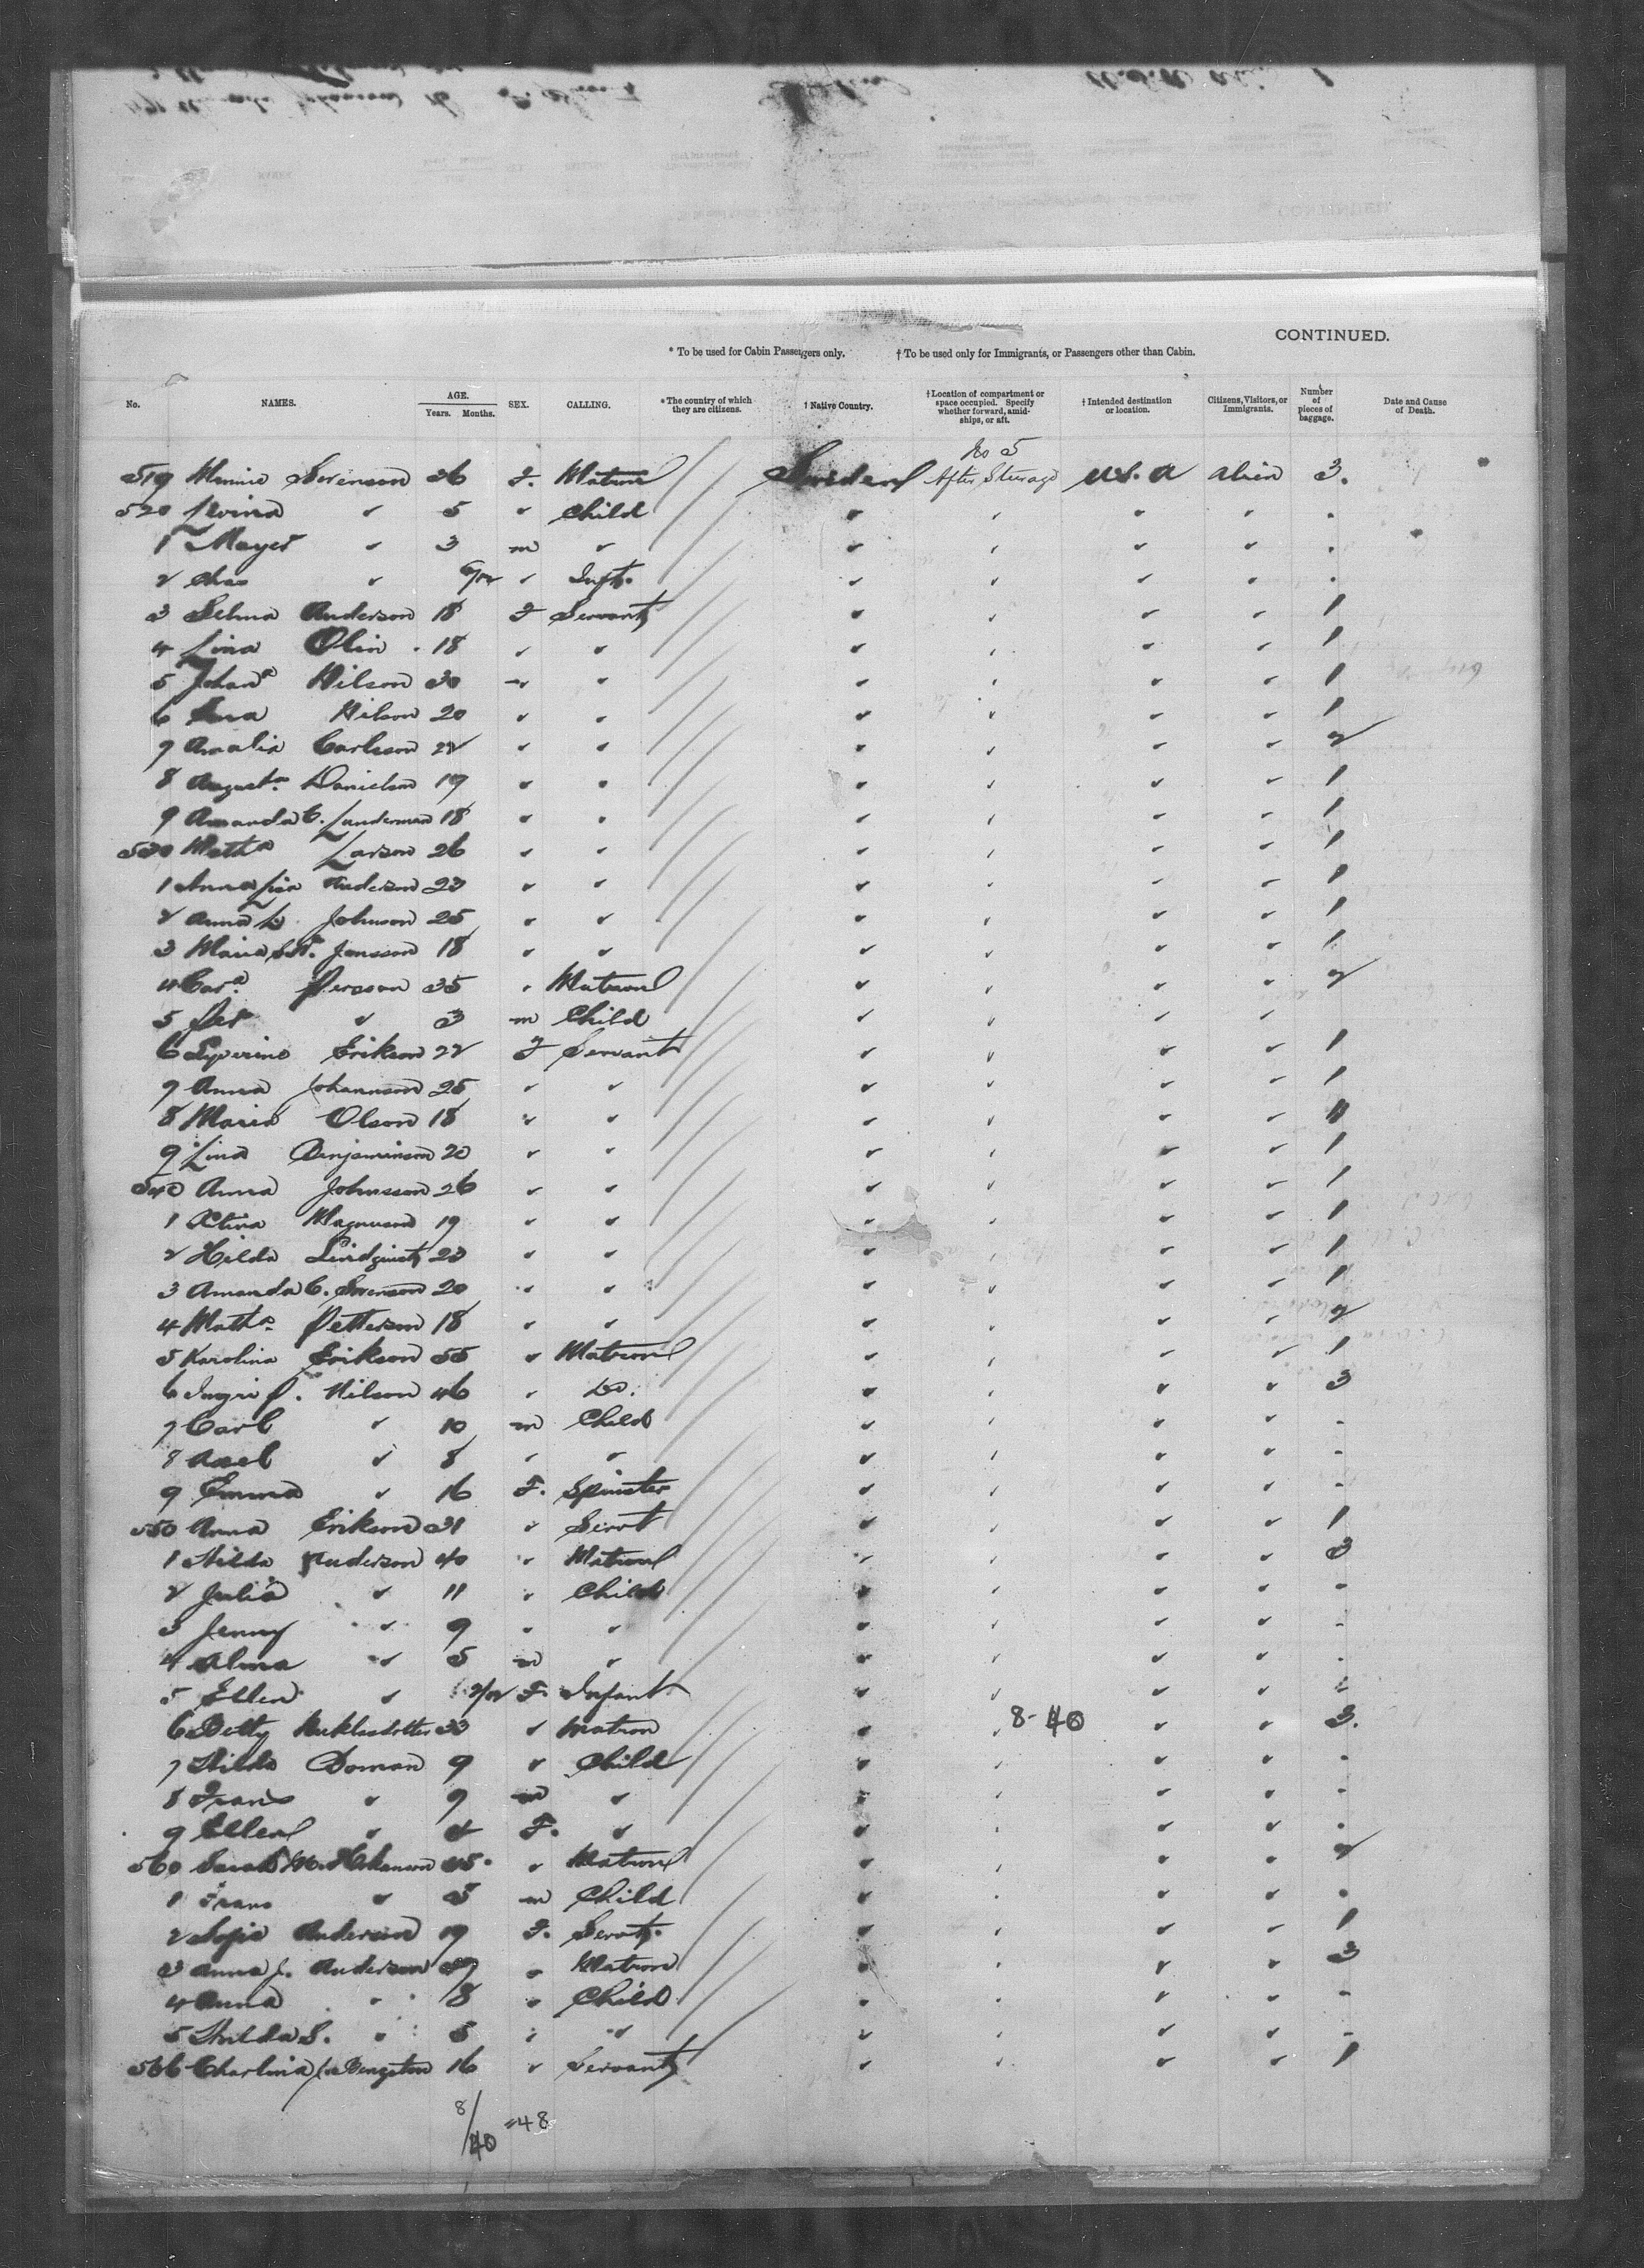 CONTINUED.
* To be used for Cabin Passengers only. † To be used only for Immigrants, or Passengers other than Cabin.
No. NAMES. AGE. Years. Months. SEX. CALLING. * The country of which they are citizens. † Native Country. † Location of compartment or space occupied. Specify whether forward, amidships, or aft. † Intended destination or location. Citizens, Visitors, or Immigrants. Number of pieces of baggage. Date and Cause of Death.
No 5
519 Minnie Sorenson 26 F. Matron Sweden After Steerage U.S.A Alien 3.
520 " 5 " Child " " " " .
1 " 3 m " " " " " .
2 Chas " " Inft. " " " " .
3 Selma Anderson 18 F Servant " " " " 1
4 Lina Olin 18 " " " " " " 1
5 Johana Nilson 30 " " " " " " 1
6 Nilson 20 " " " " " " 1
7 Amalia Carlsson 22 " " " " " " 2
8 Augusta Danielson 19 " " " " " " 1
9 Amanda C. Lunderman 18 " " " " " " 1
530 Matha Larson 26 " " " " " " 1
1 Anna Lisa Anderson 23 " " " " " " 1
2 Anna L. Johnson 25 " " " " " " 1
3 Maria Jonsson 18 " " " " " " 1
4 Cara Persson 35 " Matron " " " " 2
5 Per " 3 m Child " " " "
6 Erikson 22 F Servant " " " " 1
7 Anna Johannson 25 " " " " " " 1
8 Maria Olson 18 " " " " " "
9 Lina Benjaminson 20 " " " " " " 1
540 Anna Johnsson 26 " " " " " " 1
1 Magnuson 19 " " " " " " 1
2 Hilda Lindquist 23 " " " " " " 1
3 Amanda C. Sorenson 20 " " " " " " 1
4 Matha Petterson 18 " " " " " " 2
5 Karolina Erikson 55 " Matron " " " " 1
6 Ingri P. Nilson 46 " Do. " " " " 3
7 Carl " 10 m Child " " " " -
8 Axel " 8 " " " " " " -
9 Emma " 16 F. Spinster " " " " -
550 Anna Erikson " Servt " " " " 1
1 Hilda Anderson 40 " Matron " " " " 3
2 Julia " 11 " Child " " " " -
3 Jenny " 9 " " " " " " -
4 Alma " 5 m " " " " " .
5 Ellen " F. Infant " " " "
6 Betty 33 " Matron " " 8-40 " " 3.
7 Hilda Boman 9 " Child " " " " -
8 Frans " 9 m " " " " " -
9 Ellen " 4 F. " " " " " .
560 Sarah M. Hakanson 45 " Matron " " " " 2
1 Frans " 5 m Child " " " " .
2 Sofia Anderson 19 F. Servt. " " " " 1
3 Anna J. Anderson 39 " Matron " " " " 3
4 Anna " 8 " Child " " " " -
5 Hulda S. " 5 " " " " " " -
566 Bengston 16 " Servant " " " " 1
8/40 =48